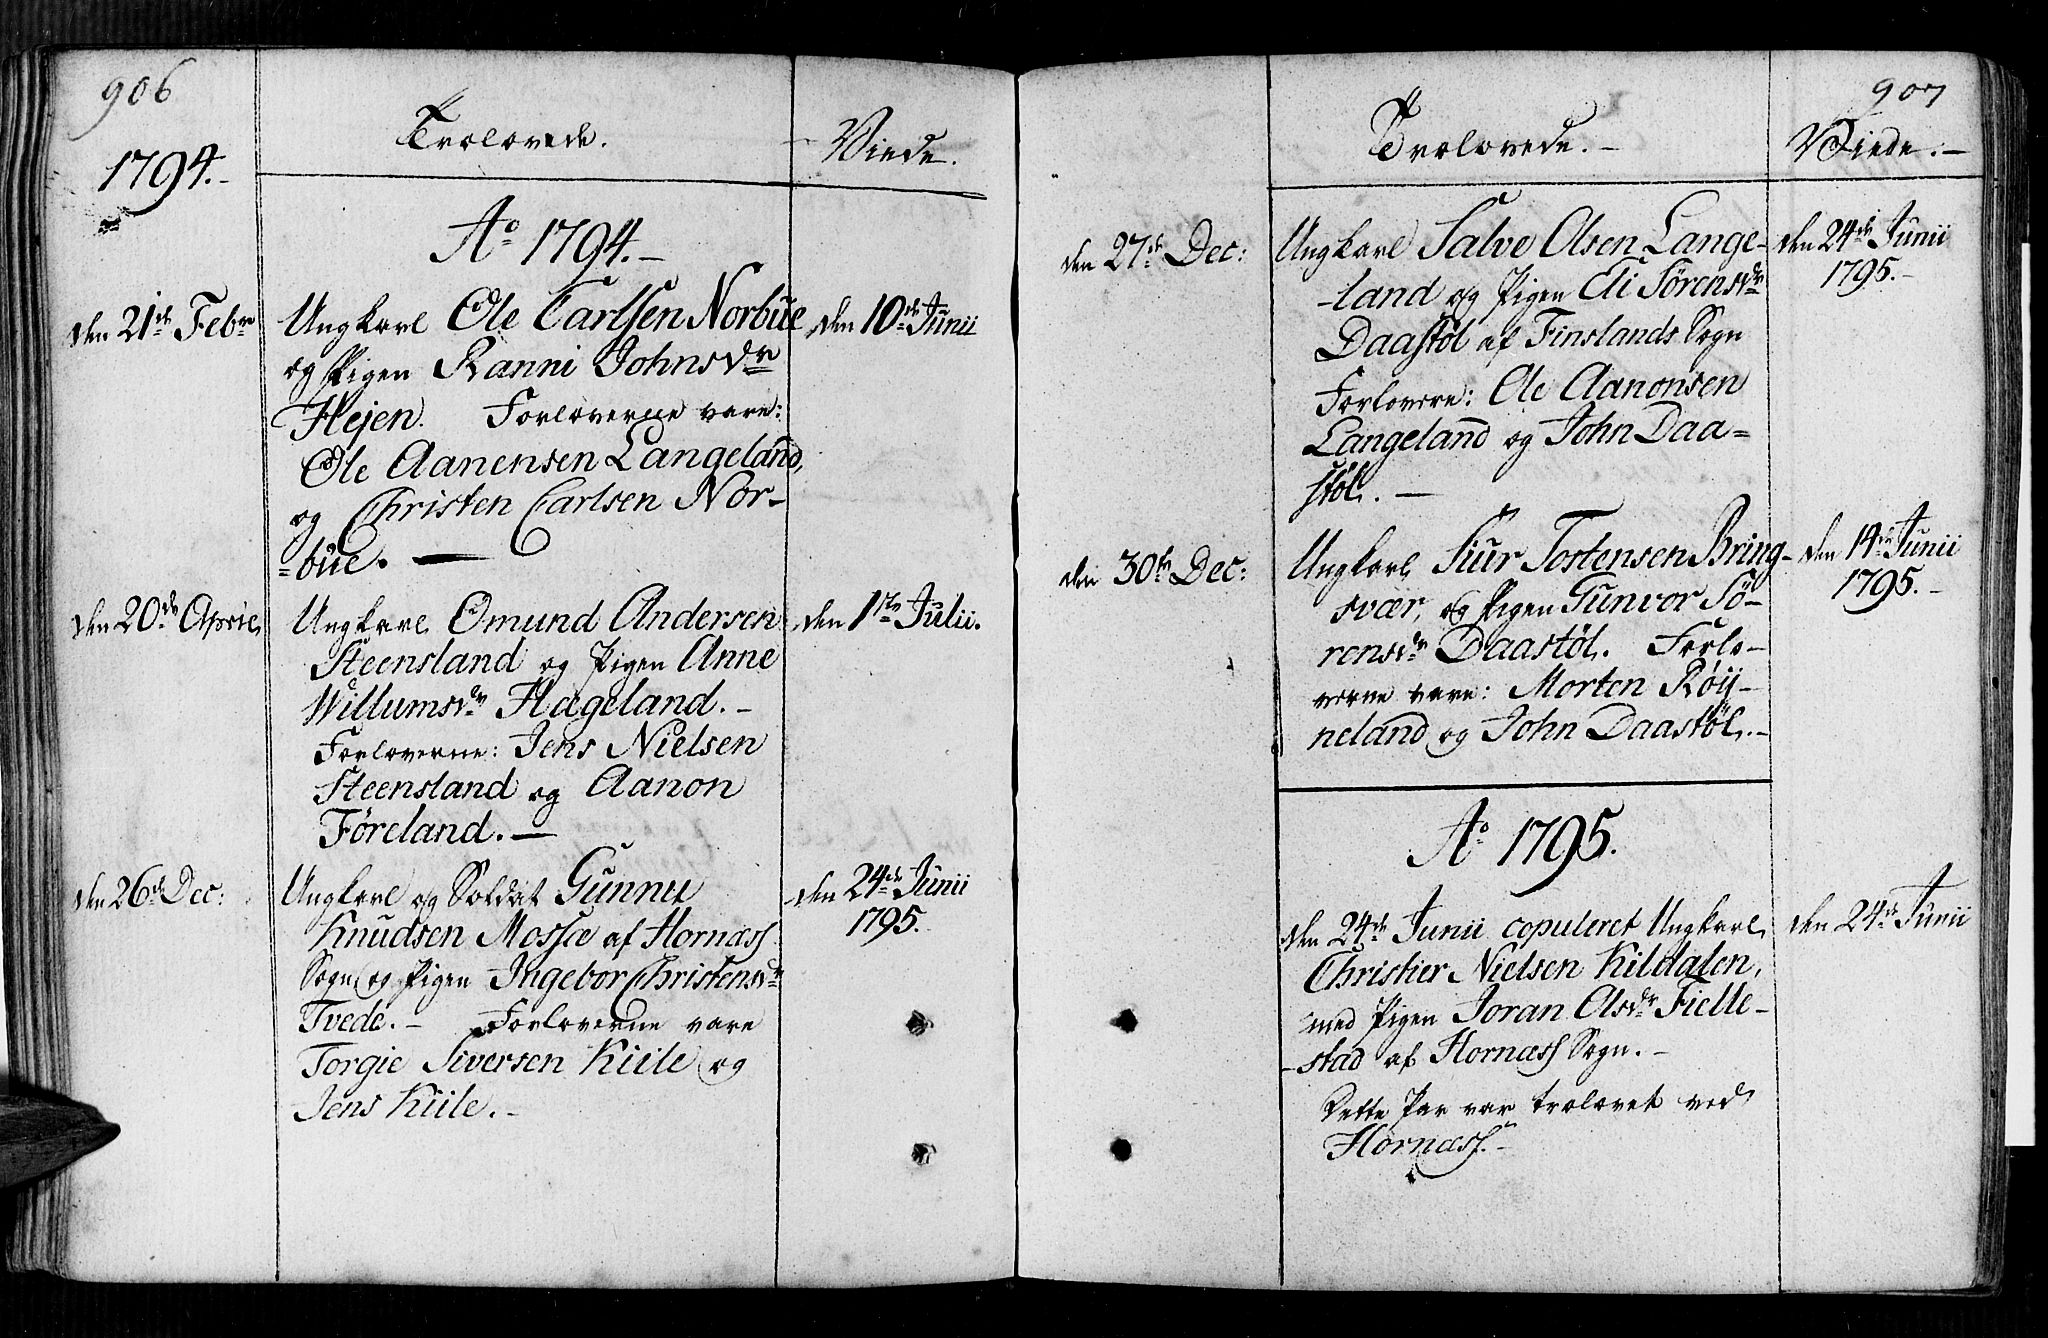 906
1794.-
Trolovede.
Viede.
A° 1794.-
den 21de Febr
Ungkarl Ole Carlsen Norbue
den 10de Junii
og Pigen Ranni Johnsdr
Hejen. Forloverne vare:
Ole Aanensen Langeland,
og Christen Carlsen Nor-
=bue. —
den 20de April
Ungkarl Omund Andersen
den 1ste Julii.
Steensland og Pigen Anne
Willumsdr Hægeland.-
Forloverne: Jens Nielsen
Steensland og Aanon
Føreland. —
den 26de Dec:
Ungkarl og Soldat Gunnu
den 24de Junii
1795.
Knudsen Mossæ af Hornæss
Sogn og Pigen Ingebor Christensdr
Tvede.- Forloverne vare
Torgie Siversen Kiile og
Jens Kiile.-
907
Trolovede.-
Viede.-
den 27de Dec:
Ungkarl Salve Olsen Lange-
den 24de Junii
1795.-
-land og Pigen Eli Sørensdr
Daastøl af Finslands Sogn
Forlovere: Ole Aanonsen
Langeland og John Daa=
støl. —
den 30te Dec:
Ungkarl Siur Tostensen Bring-
den 14de Junii
1795.-
svær, og Pigen Gunvor Sø-
rensdr Daastøl. Forlo-
verne vare: Morten Røy-
neland og John Daastøl.-
A° 1795.
den 24de Junii copuleret Ungkarl
den 24de Junii
Christier Nielsen Kildalen,
med Pigen Joran Olsdr Fielle-
-stad af Hornæss Sogn.-
Dette Par var trolovet ved
Hornæss.-